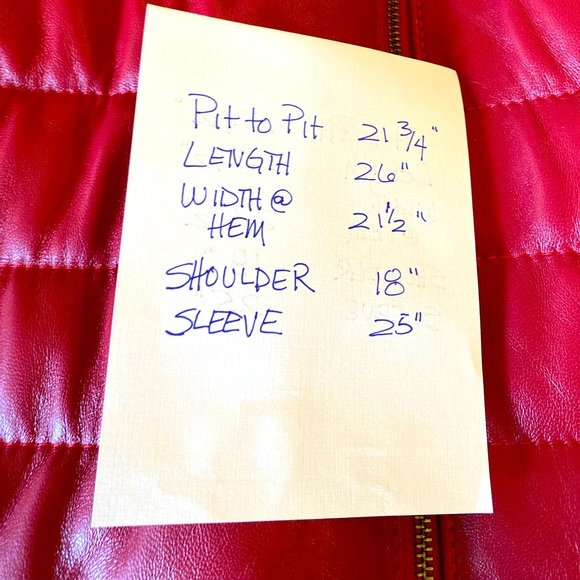 Pit to Pit 21 3/4"
LENGTH 26"
WIDTH @
HEM 21 1/2"
SHOULDER 18"
SLEEVE 25"